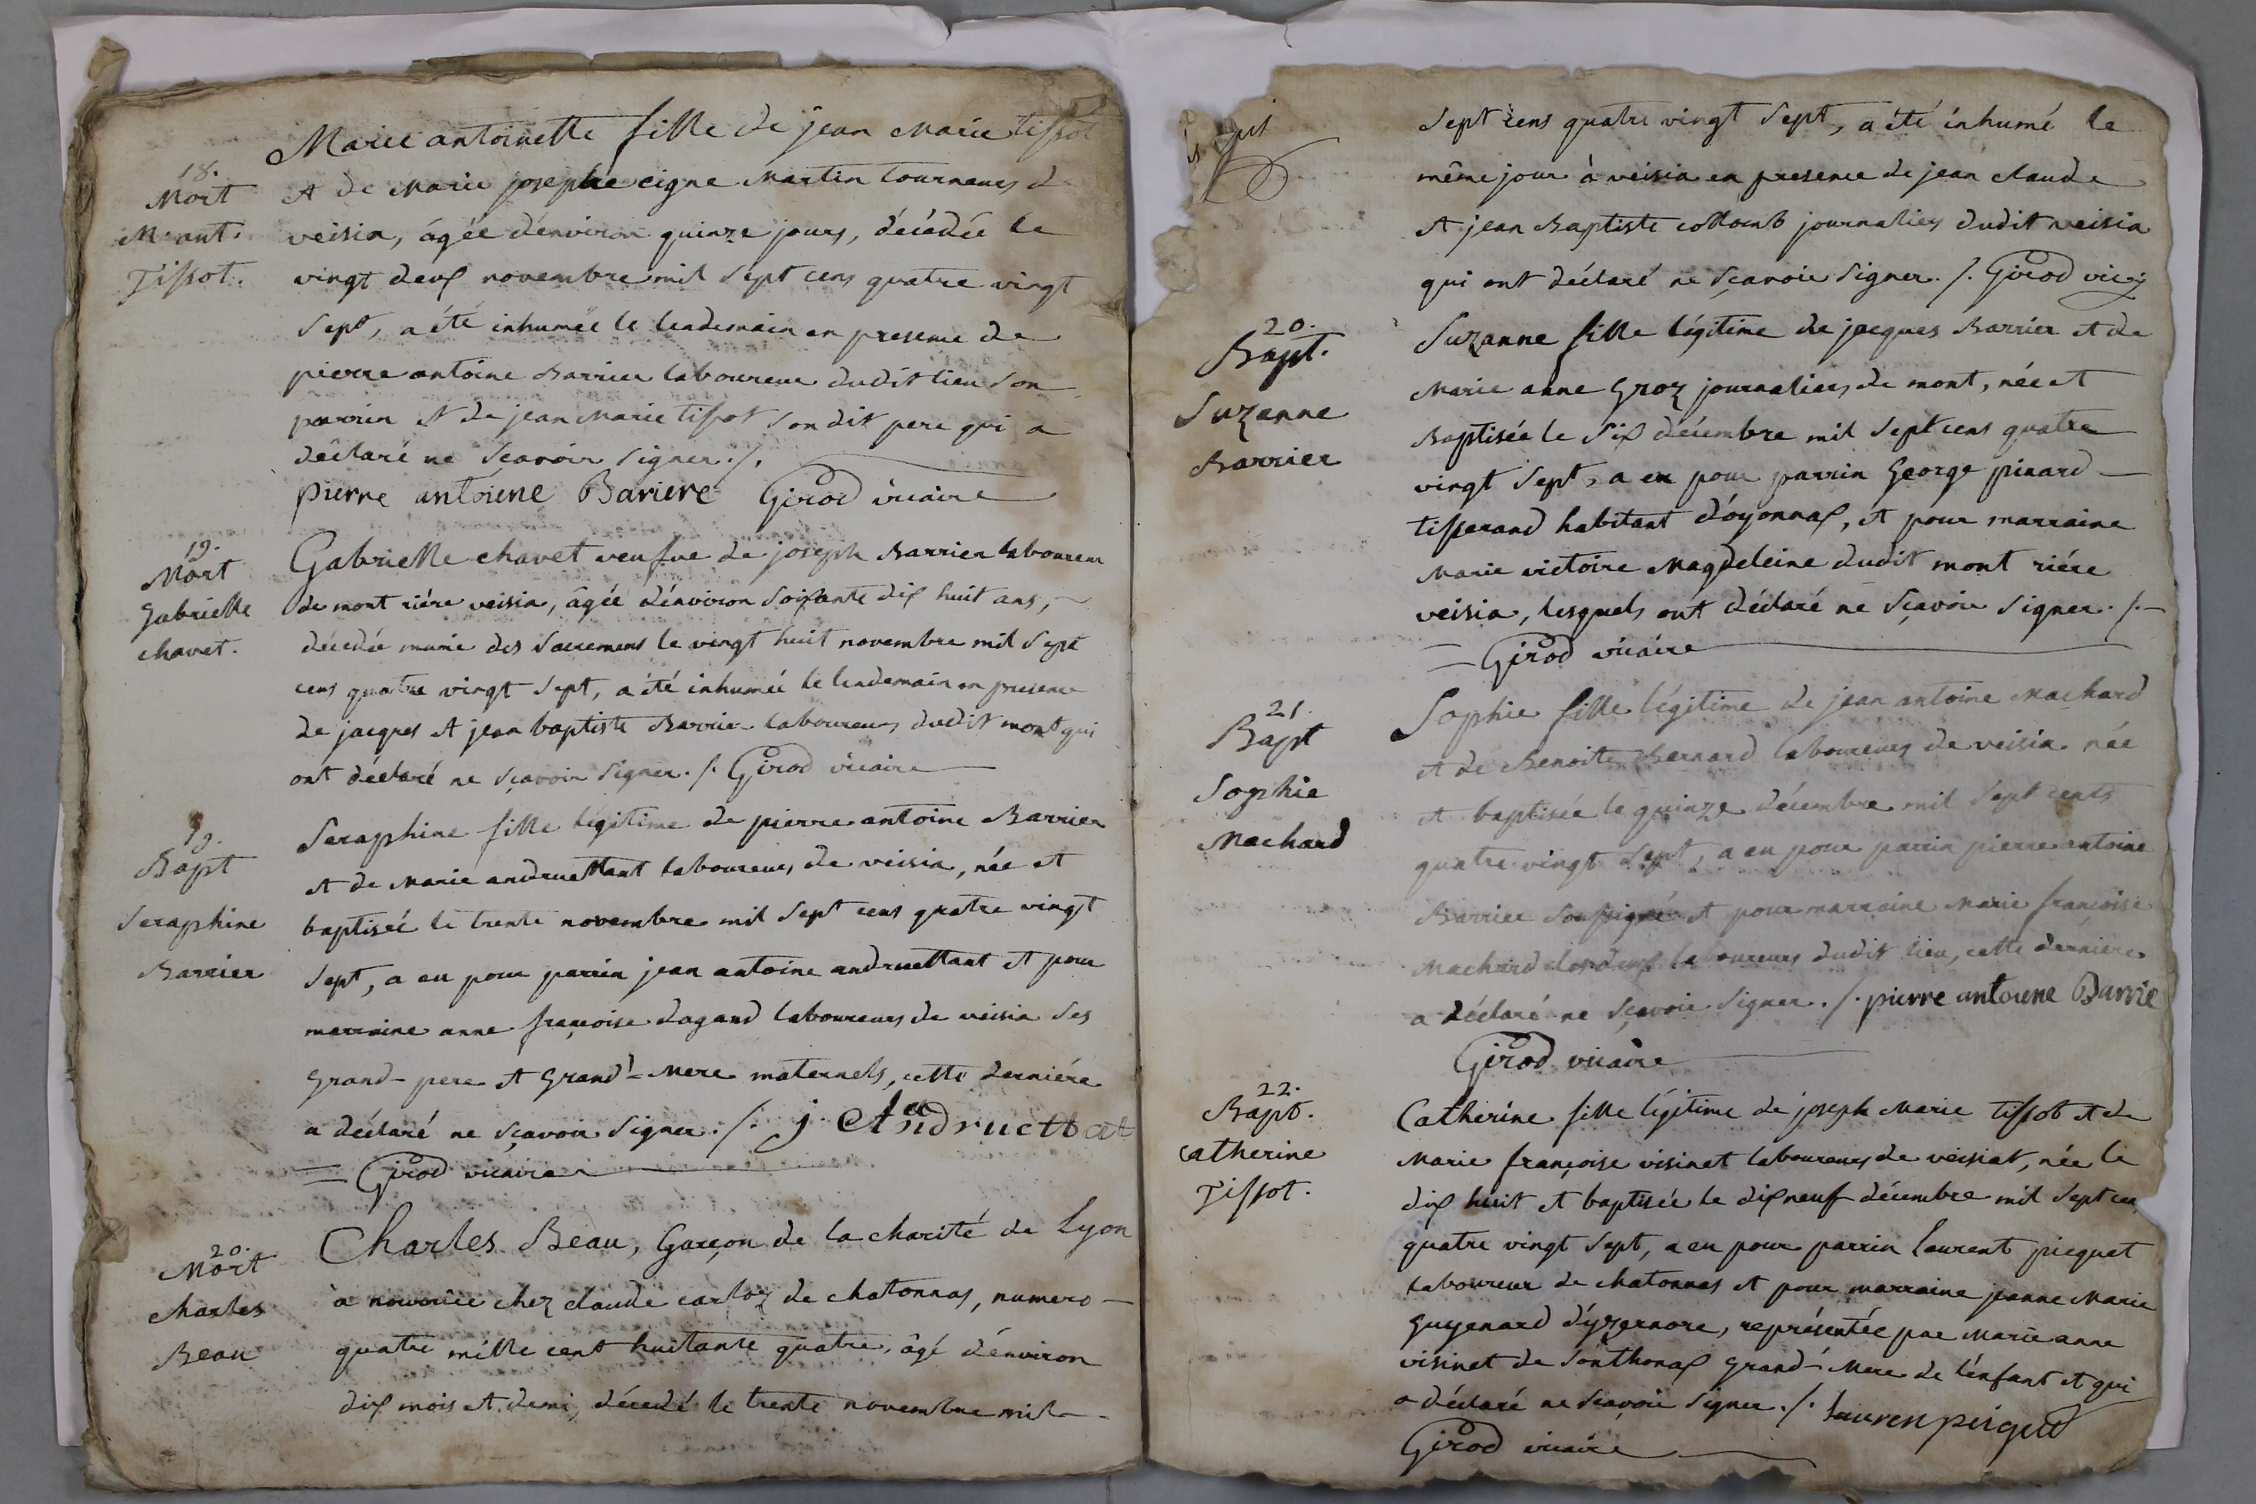 18.
Mort
M. ant.
Tissot.
Marie antoinette fille de jean Marie tissot
et de Marie josephe eigne Martin tourneurs d
veisia, âgée d'environ quinze jours, décédée le
vingt deux novembre mil sept cens quatre vingt
sept, a été inhumée le lendemain en presence de
pierre antoine Barrier laboureur dudit lieu son
parrin et de jean Marie tissot son dit pere qui a
déclaré ne sçavoir signer ./.
pierre antoiene Bariere Girod vicaire
19.
Mort
Gabrielle
chavet.
Gabrielle chavet veufve de joseph Barrier laboureur
de mont riére veisia, âgée d'environ soixante dix huit ans,
décédée munie des sacremens le vingt huit novembre mil sept
cens quatre vingt sept, a été inhumée le lendemain en presence
de jacques et jean baptiste Barrier laboureurs dudit mont qui
ont déclaré ne sçavoir signer ./. Girod vicaire
19.
Bapt
Seraphine
Barrier
Seraphine fille légitime de pierre antoine Barrier
et de Marie andruettant laboureurs de veisia, née et
baptisée le trente novembre mil sept cens quatre vingt
sept, a eu pour parrin jean antoine andruettant et pour
marraine anne françoise dagand laboureurs de veisia ses
grand-pere et grand'-mere maternels, cette derniére
a déclaré ne sçavoir signer ./. j Andruettat
= Girod vicaire
20.
Mort
charles
Beau
Charles Beau, garçon de la charité de Lyon
à nourrice chez claude carloz de chatonnas, numero
quatre mille cent huitante quatre, âgé d'environ
dix mois et demi, décédé le trente novembre mil
sept cens quatre vingt sept, a été inhumé le
même jour à veisia en presence de jean claude
et jean Baptiste collomb journaliers dudit veisia
qui ont déclaré ne sçavoir signer ./. Girod vic.
20.
Bapt.
Suzanne
Barrier
Suzanne fille légitime de jacques Barrier et de
Marie anne Groz journaliers de mont, née et
Baptisée le six décembre mil sept cens quatre
vingt sept, a eu pour parrin George pinard
tisserand habitant d'oyonnax, et pour marraine
Marie victoire Magdeleine dudit mont riére
veisia, lesquels ont déclaré ne sçavoir signer ./.
= Girod vicaire
21.
Bapt
Sophie
Machard
Sophie fille légitime de jean antoine Machard
et de Benoite Bernard laboureurs de veisia née
et baptisée le quinze décembre mil sept cents
quatre vingt sept, a eu pour parrin pierre antoine
Barrier soussigné et pour marraine Marie françoise
Machard laboureurs dudit lieu, cette derniére
a déclaré ne sçavoir signer ./. pierre antoiene Barrie
Girod vicaire
22.
Bapt.
catherine
Tissot.
Catherine fille légitime de joseph Marie tissot et de
Marie françoise visinet laboureurs de veisiat, née le
dix huit et baptisée le dix neuf décembre mil sept cen
quatre vingt sept, a eu pour parrin Laurent picquet
laboureur de chatonnas et pour marraine jeanne Marie
Guyenard d'yzernore, représentée par Marie anne
visinet de sonthonax grand'-Mere de l'enfant et qui
a déclaré ne sçavoir signer ./. lauren piquet
Girod vicaire